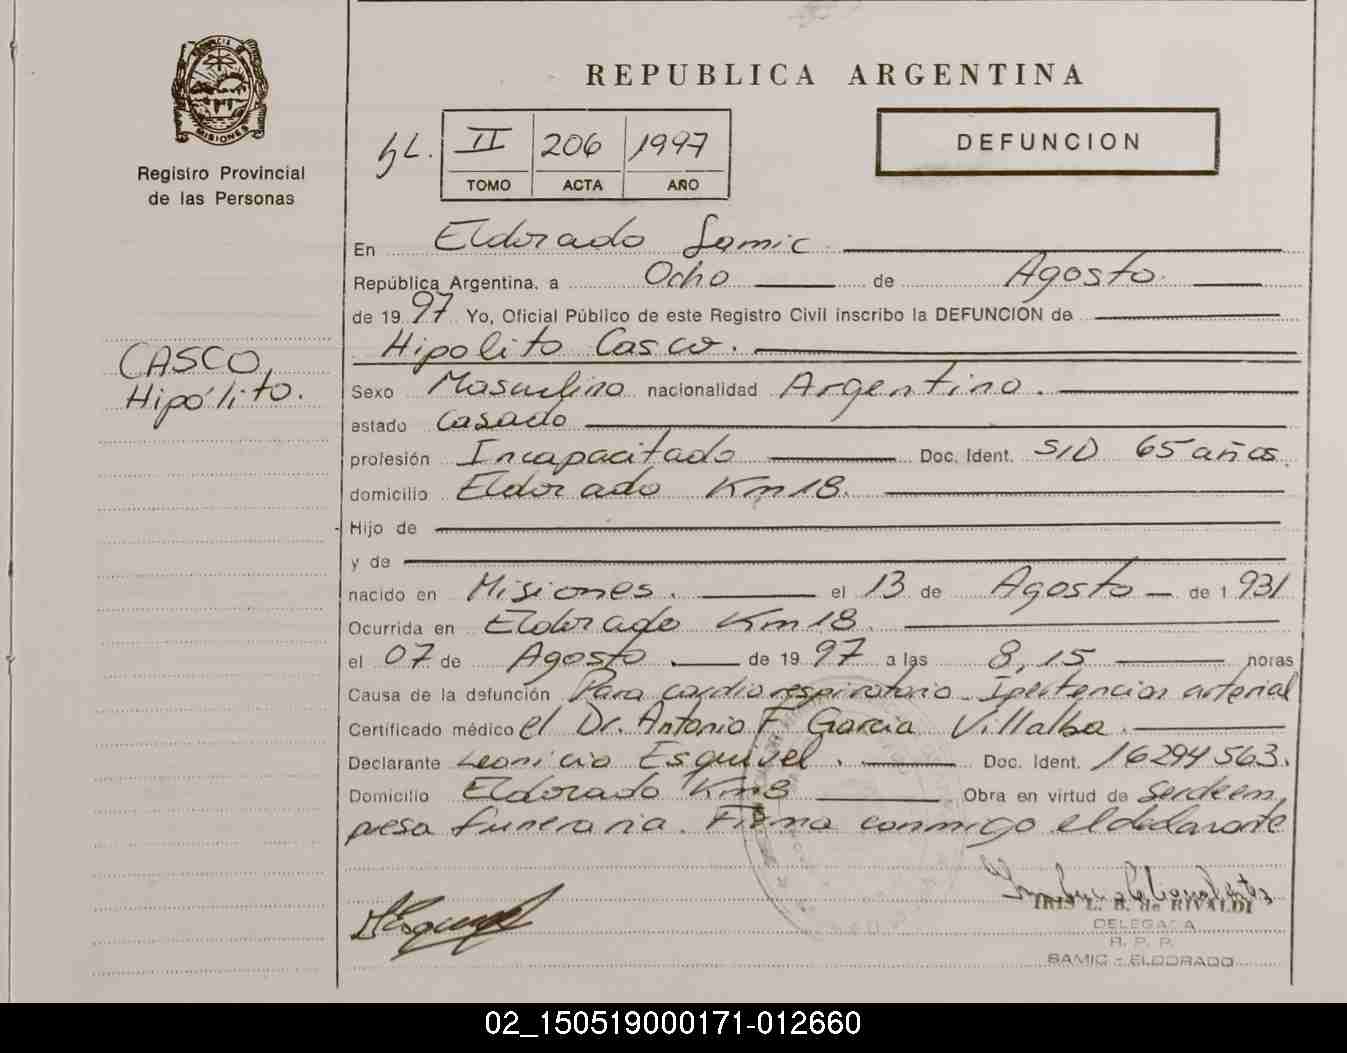 REPUBLICA ARGENTINA
MISIONES
Registro Provincial
de las Personas
II 206 1997
TOMO ACTA AÑO
DEFUNCION
En Eldorado Samic
República Argentina, a Ocho de Agosto
de 1997 Yo, Oficial Público de este Registro Civil inscribo la DEFUNCION de
Hipolito Casco.
CASCO,
Hipólito.
Sexo Masculino nacionalidad Argentino.
estado Casado
profesión Incapacitado Doc. Ident. S/D 65 años.
domicilio Eldorado Km18.
Hijo de
y de
nacido en Misiones. el 13 de Agosto de 1931
Ocurrida en Eldorado Km18.
el 07 de Agosto. de 1997 a las 8,15 horas
Causa de la defunción Paro cardiorespiratorio - Ipertencion arterial
Certificado médico el Dr. Antonio F. Garcia Villalba.
Declarante Leonicio Esquivel. Doc. Ident. 16294563.
Domicilio Eldorado Km8 Obra en virtud de Serdeem,
presa funeraria. Firma conmigo el declarante
IRIS L. B. de RIVALDI
DELEGADA
R. P. P.
SAMIC - ELDORADO
02_150519000171-012660